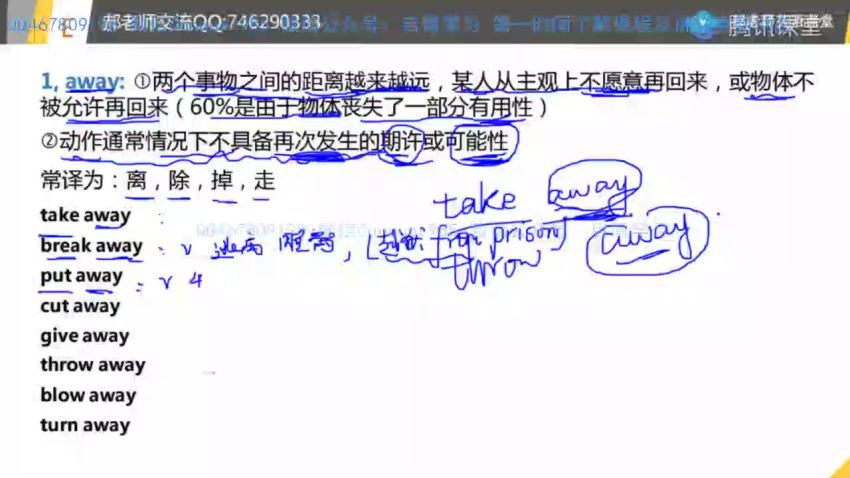 郝老师交流QQ:746290333
腾讯课堂
1, away: ①两个事物之间的距离越来越远，某人从主观上不愿意再回来，或物体不
被允许再回来（60%是由于物体丧失了一部分有用性）
②动作通常情况下不具备再次发生的期许或可能性
常译为：离，除，掉，走
take away :
take away
break away : v 逃离 脱离, [越狱 from prison]
throw away
put away : v
cut away
give away
throw away
blow away
turn away